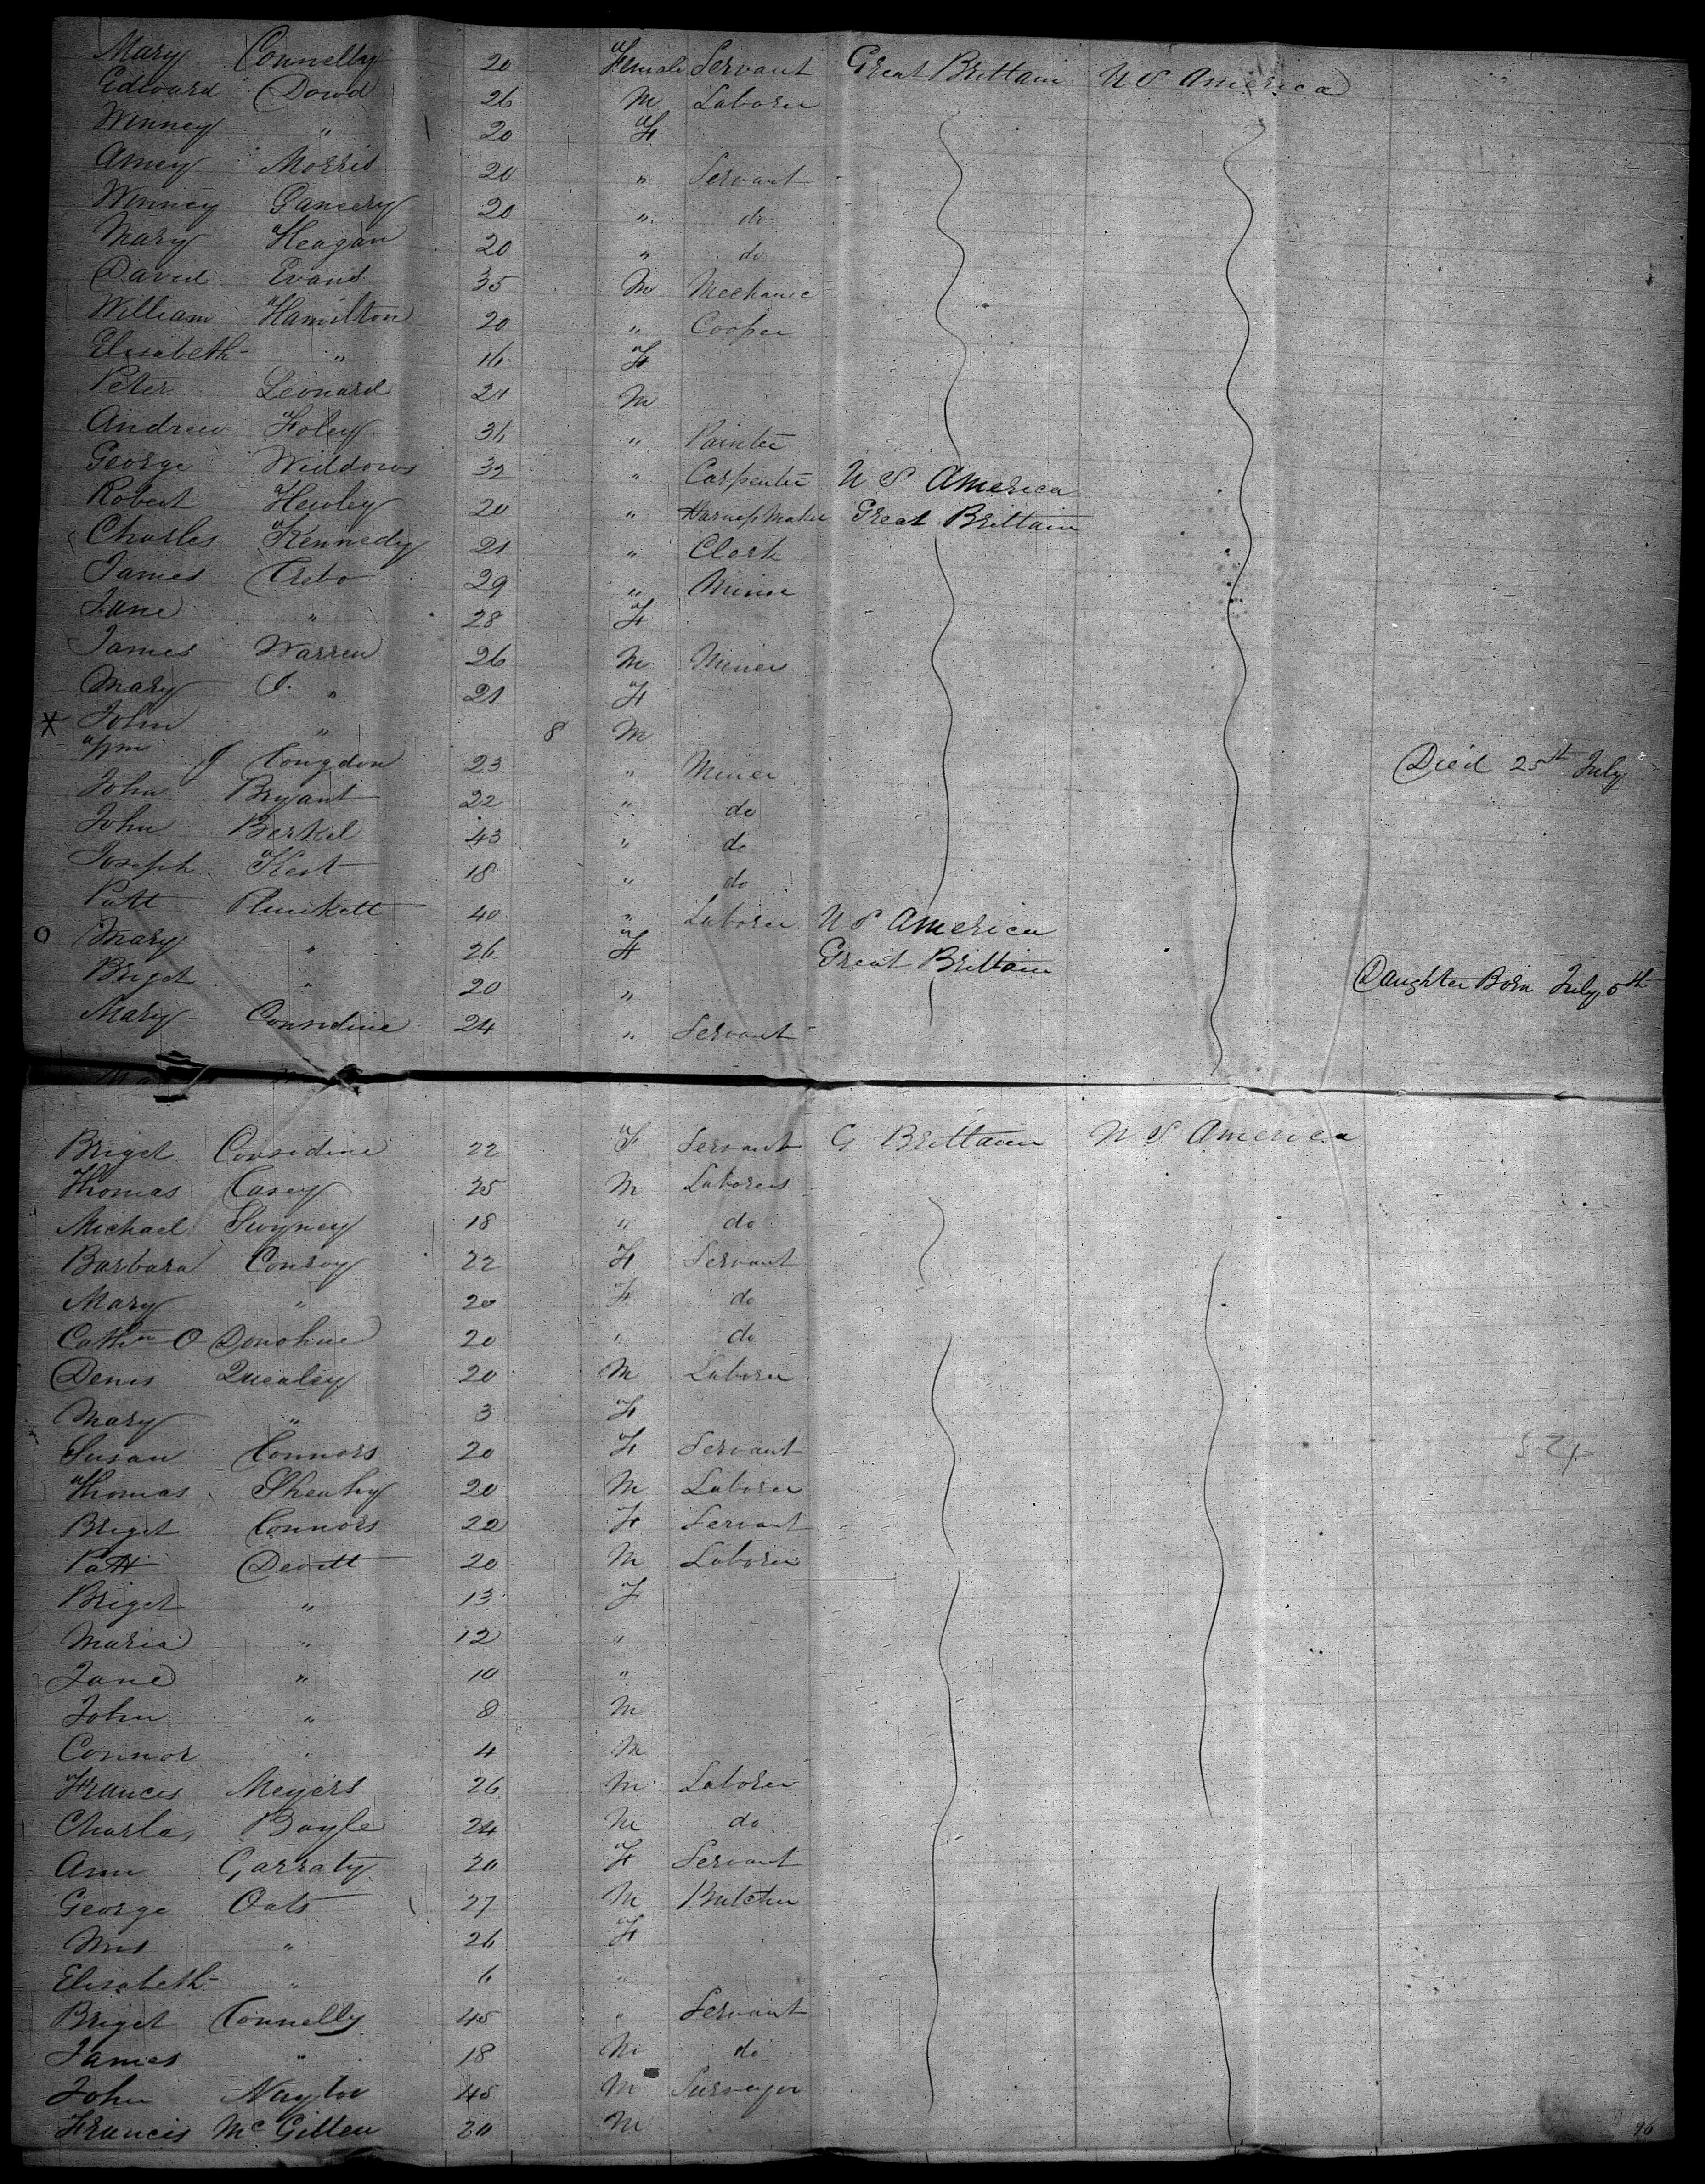 Mary Connelly 20 Female Servant Great Brittain U S America
Edward Dowd 26 M Laborer
Winney " 20 F
Amey Morris 20 " Servant
Winney Gancery 20 " do
Mary Heagan 20 " do
David Evans 35 M Mechanic
William Hamilton 20 " Cooper
Elisabeth " 16 F
Peter Leonard 21 M
Andrew Foley 36 " Painter
George Widdows 32 " Carpenter U S America
Robert Hewley 20 " Harness Maker Great Brittain
Charles Kennedy 21 " Clerk
James Crebo 29 " Miner
Jane " 28 F
James Warren 26 M Miner
Mary J. " 21 F
X John " 8 M
Wm J Congdon 23 " Miner Died 25th July
John Bryant 22 " do
John Berkel 43 " do
Joseph Kest 18 " do
Patt Plunkett 40 " Laborer U.S America
O Mary " 26 F Great Brittain
Briget " 20 " Daughter Born July 5th
Mary Considine 24 " Servant
Briget Considine 22 F Servant G Brittain U S America
Thomas Casey 25 M Laborers
Michael Swyney 18 " do
Barbara Conroy 22 F Servant
Mary " 20 F do
Cathn O Donohue 20 " do
Denis Quealey 20 M Laborer
Mary " 3 F
Susan Connors 20 F Servant
Thomas Sheahy 20 M Laborer
Briget Connors 22 F Servant
Patt Devitt 20 M Laborer
Briget " 13 F
Maria " 12 "
Jane " 10 "
John " 8 M
Connor " 4 M
Francis Meyers 26 M Laborer
Charles Boyle 24 M do
Ann Garraty 20 F Servant
George Oats 27 M Butcher
Mrs " 26 F
Elisabeth " 6 "
Briget Connelly 45 " Servant
James " 18 M do
John Naylor 45 M Surveyor
Francis McGillen 20 M
96